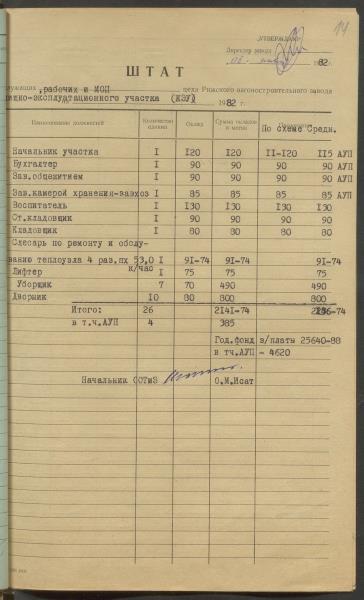 14
„УТВЕРЖДАЮ"
Директор завода
1982.
ШТАТ
служащих, рабочих и МОП цеха Рижского вагоностроительного завода
ищно-эксплуатационного участка (ЖЭУ) 1982 г.
Наименование должностей Количество единиц Оклад Сумма окладов в месяц По схеме Средн.
Начальник участка I I20 I20 II-I20 II5 АУП
Бухгалтер I 90 90 90 90 АУП
Зав.общежитием I 90 90 90 90 АУП
Зав.камерой хранения-завхоз I 85 85 85 85 АУП
Воспитатель I I30 I30 I30 I30
Ст.кладовщик I 90 90 90 90
Кладовщик I 80 80 80 80
Слесарь по ремонту и обслу-
ванию теплоузла 4 раз.пх 53,0 I 9I-74 9I-74 9I-74
к/час
Лифтер I 75 75 75
Уборщик 7 70 490 490
Дворник I0 80 800 800
Итого: 26 2I4I-74 -74
в т.ч.АУП 4 385
Год.фонд з/платы 25640-88
в тч.АУП - 4620
Начальник ООТиЗ О.М.Исат